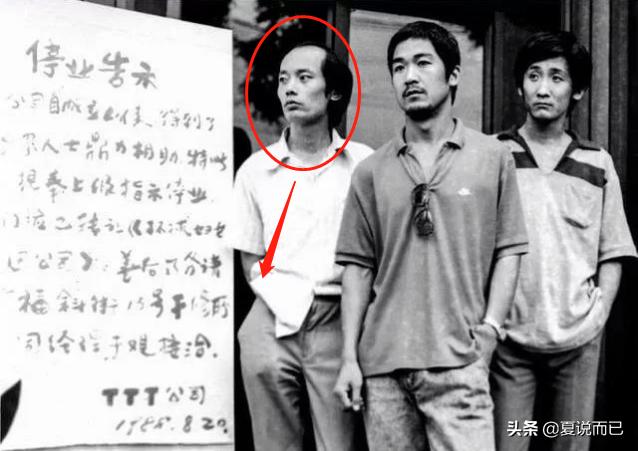 停业告示
公司自成立以来,得到了
界人士鼎力相助,特此
现奉上级指示停业,
已转让《环球妇
公司》,善后请
斜街15号于
司经理于观接洽.
TTT公司
1988.8.20.
头条 @夏说而已